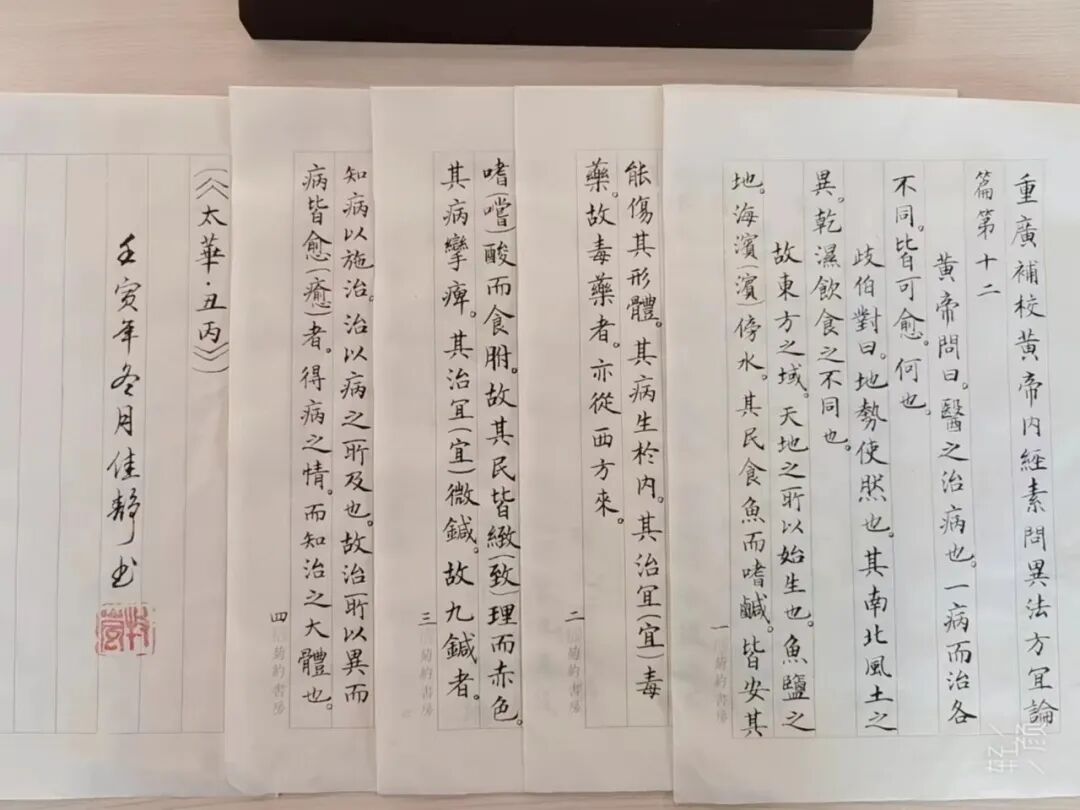 重廣補校黃帝内經素問異法方冝論
篇第十二
黃帝問曰。醫之治病也。一病而治各
不同。皆可愈。何也。
歧伯對曰。地勢使然也。其南北風土之
異。乾濕飲食之不同也。
故東方之域。天地之所以始生也。魚鹽之
地。海濵(濱)傍水。其民食魚而嗜鹹。皆安其
一
菊約書房
能傷其形體。其病生於内。其治冝(宜)毒
藥。故毒藥者。亦從西方來。
二
菊約書房
嗜(嚐)酸而食胕。故其民皆緻(致)理而赤色。
其病攣痺。其治冝(宜)微鍼。故九鍼者。
三
菊約書房
知病以施治。治以病之所及也。故治所以異而
病皆愈(癒)者。得病之情。而知治之大體也。
四
菊約書房
《《太華·丑丙》》
壬寅年冬月佳靜书
轻颜